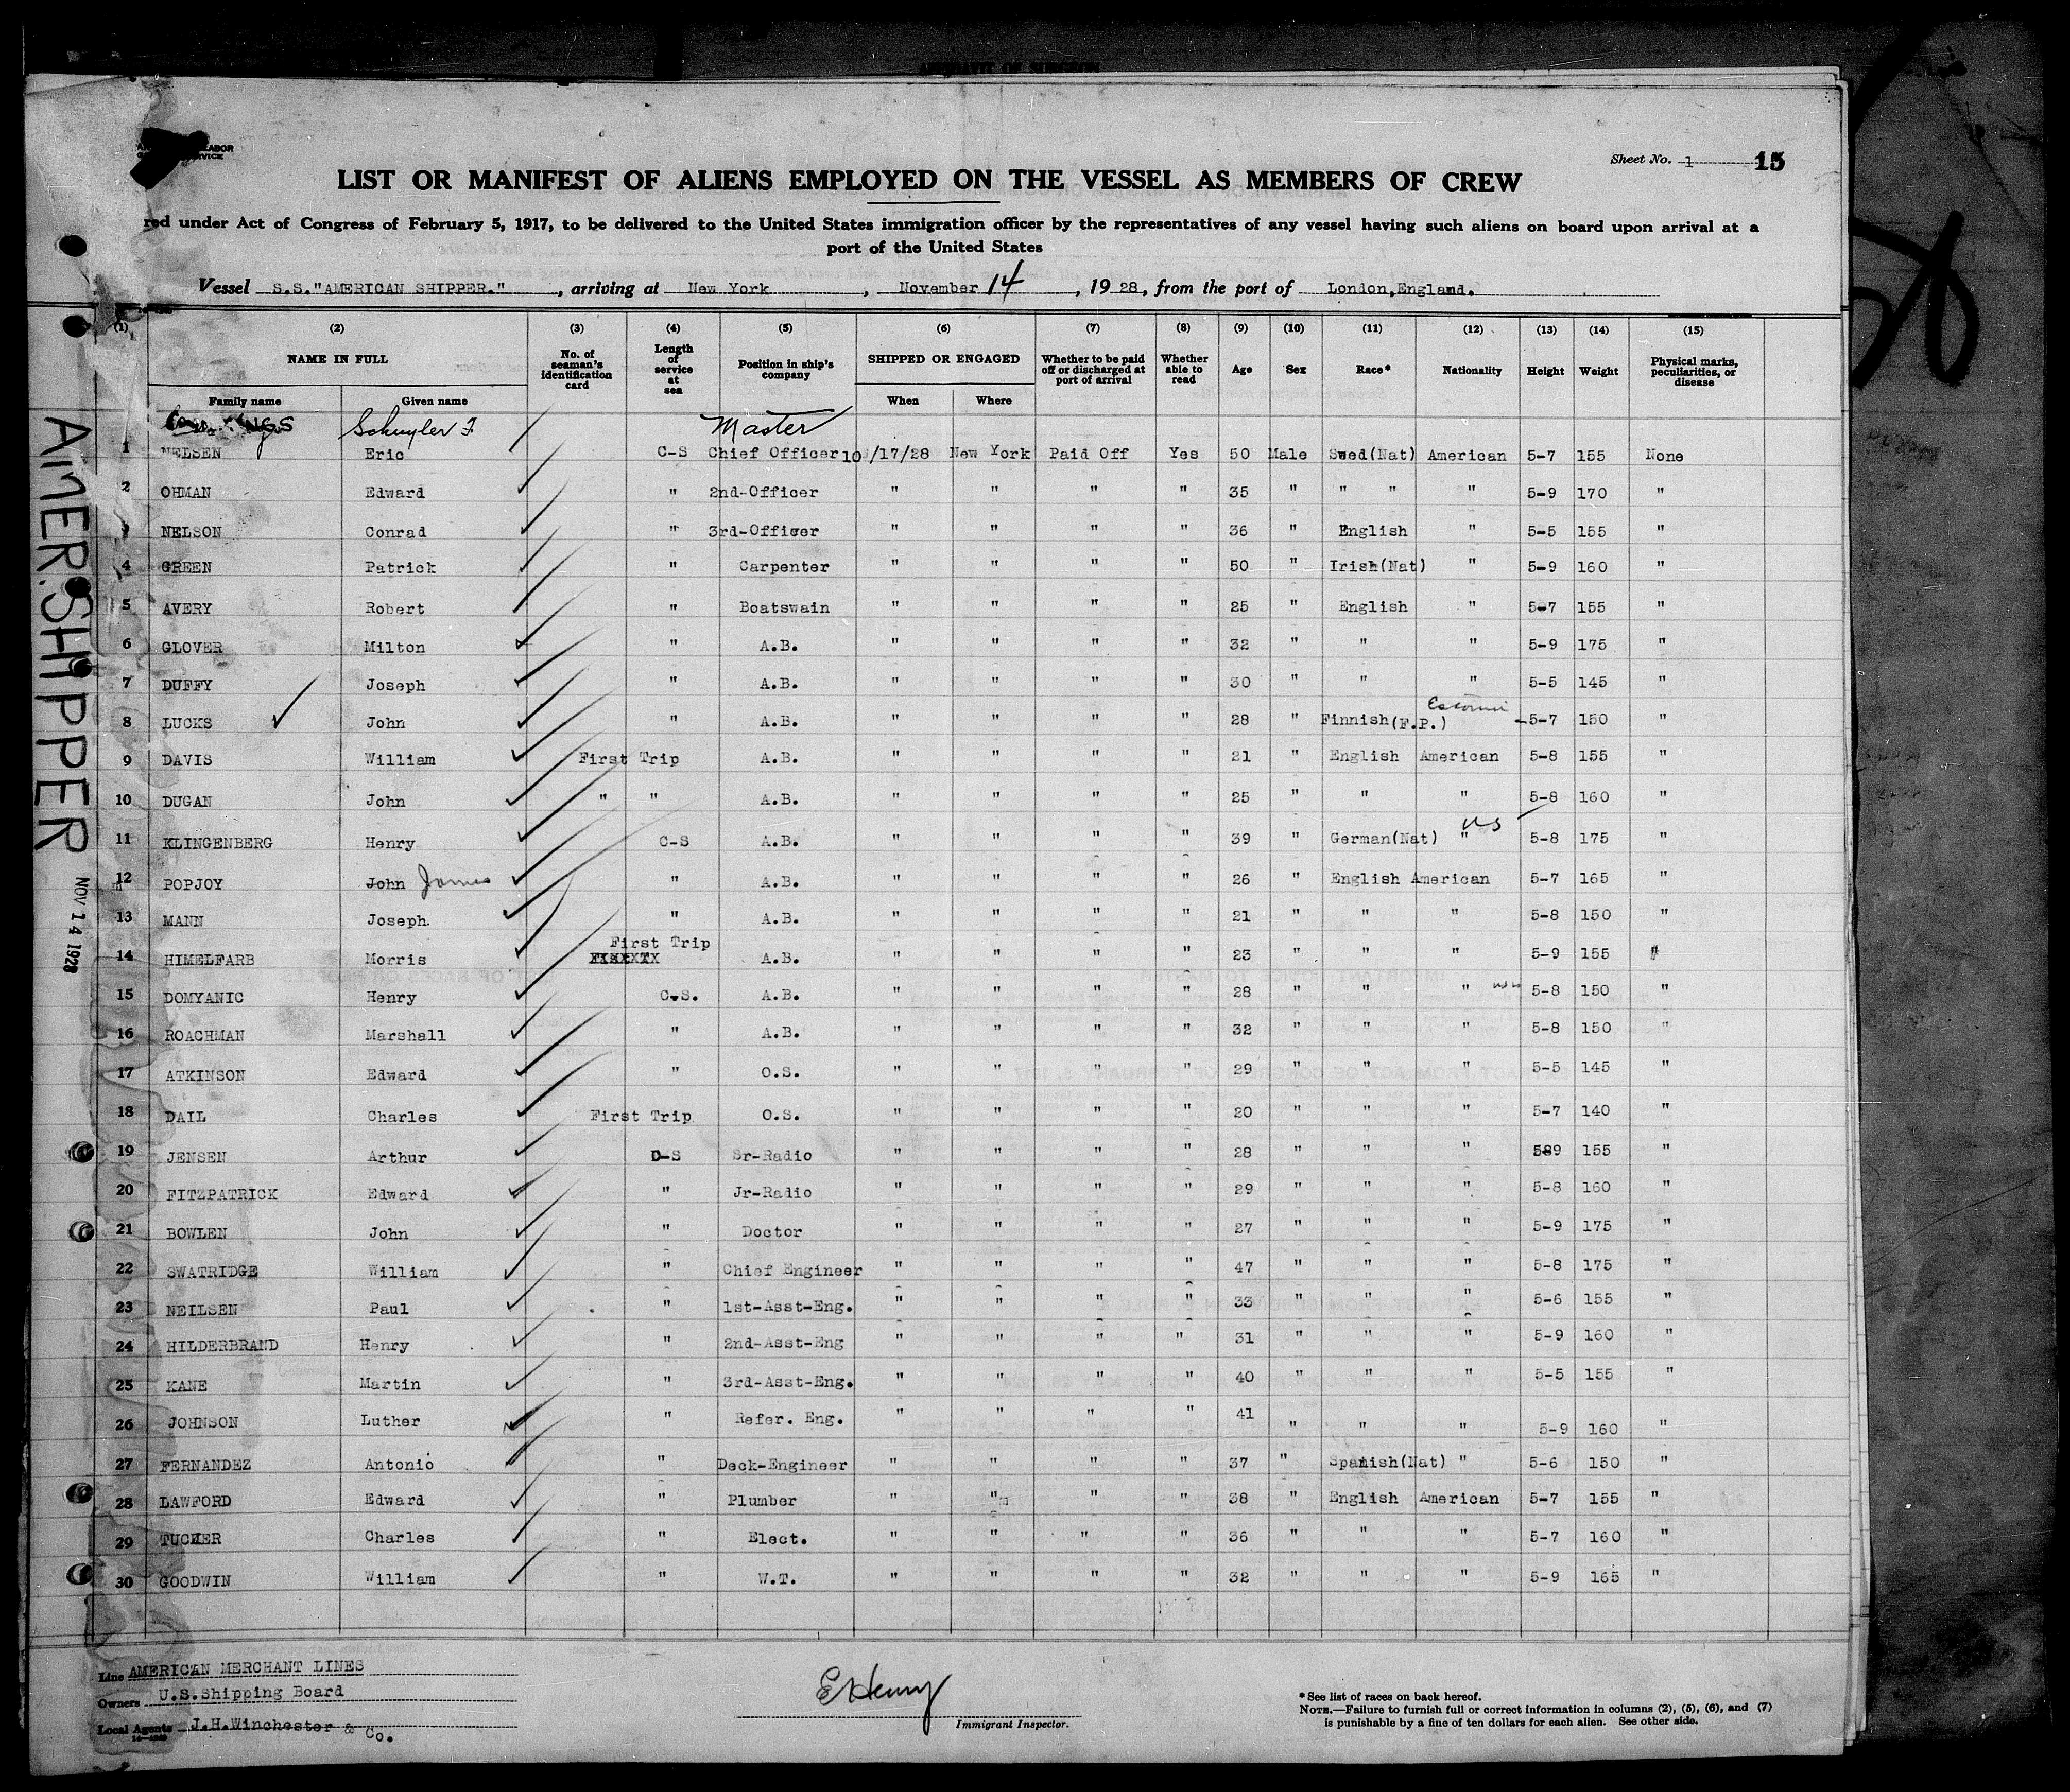 LABOR
SERVICE
Sheet No. 1 15
LIST OR MANIFEST OF ALIENS EMPLOYED ON THE VESSEL AS MEMBERS OF CREW
red under Act of Congress of February 5, 1917, to be delivered to the United States immigration officer by the representatives of any vessel having such aliens on board upon arrival at a
port of the United States
Vessel S.S."AMERICAN SHIPPER." , arriving at New York , November 14 , 1928, from the port of London,England.
(1) (2) (3) (4) (5) (6) (7) (8) (9) (10) (11) (12) (13) (14) (15)
NAME IN FULL No. of seaman's identification card Length of service at sea Position in ship's company SHIPPED OR ENGAGED Whether to be paid off or discharged at port of arrival Whether able to read Age Sex Race* Nationality Height Weight Physical marks, peculiarities, or disease
Family name Given name When Where
Schuyler F. Master
1 NELSEN Eric C-S Chief Officer 10/17/28 New York Paid Off Yes 50 Male Swed(Nat) American 5-7 155 None
2 OHMAN Edward " 2nd-Officer " " " " 35 " " " " 5-9 170 "
3 NELSON Conrad " 3rd-Officer " " " " 36 " English " 5-5 155 "
4 GREEN Patrick " Carpenter " " " " 50 " Irish(Nat) " 5-9 160 "
5 AVERY Robert " Boatswain " " " " 25 " English " 5-7 155 "
6 GLOVER Milton " A.B. " " " " 32 " " " 5-9 175 "
7 DUFFY Joseph " A.B. " " " " 30 " " " 5-5 145 "
8 LUCKS John " A.B. " " " " 28 " Finnish(F.P.) 5-7 150 "
9 DAVIS William First Trip A.B. " " " " 21 " English American 5-8 155 "
10 DUGAN John " " A.B. " " " " 25 " " " 5-8 160 "
11 KLINGENBERG Henry C-S A.B. " " " " 39 " German(Nat) " US 5-8 175 "
12 POPJOY John James " A.B. " " " " 26 " English American 5-7 165 "
13 MANN Joseph. " A.B. " " " " 21 " " " 5-8 150 "
14 HIMELFARB Morris First Trip A.B. " " " " 23 " " " 5-9 155 "
15 DOMYANIC Henry C.S. A.B. " " " " 28 " " " 5-8 150 "
16 ROACHMAN Marshall " A.B. " " " " 32 " " " 5-8 150 "
17 ATKINSON Edward " O.S. " " " " 29 " " " 5-5 145 "
18 DAIL Charles First Trip O.S. " " " " 20 " " " 5-7 140 "
19 JENSEN Arthur D-S Sr-Radio " " " " 28 " " " 5-9 155 "
20 FITZPATRICK Edward " Jr-Radio " " " " 29 " " " 5-8 160 "
21 BOWLEN John " Doctor " " " " 27 " " " 5-9 175 "
22 SWATRIDGE William " Chief Engineer " " " " 47 " " " 5-8 175 "
23 NEILSEN Paul " 1st-Asst-Eng. " " " " 33 " " " 5-6 155 "
24 HILDERBRAND Henry " 2nd-Asst-Eng " " " " 31 " " " 5-9 160 "
25 KANE Martin " 3rd-Asst-Eng. " " " " 40 " " " 5-5 155 "
26 JOHNSON Luther " Refer. Eng. " " " " 41 " " " 5-9 160 "
27 FERNANDEZ Antonio " Deck-Engineer " " " " 37 " Spanish(Nat) " 5-6 150 "
28 LAWFORD Edward " Plumber " "m " " 38 " English American 5-7 155 "
29 TUCKER Charles " Elect. " " " " 36 " " " 5-7 160 "
30 GOODWIN William " W.T. " " " " 32 " " " 5-9 165 "
AMER. SHIPPER
NOV 14 1928
Line AMERICAN MERCHANT LINES
Owners U.S.Shipping Board
Local Agents J.H.Winchester & Co.
E Henry
Immigrant Inspector.
* See list of races on back hereof.
NOTE.—Failure to furnish full or correct information in columns (2), (5), (6), and (7)
is punishable by a fine of ten dollars for each alien. See other side.